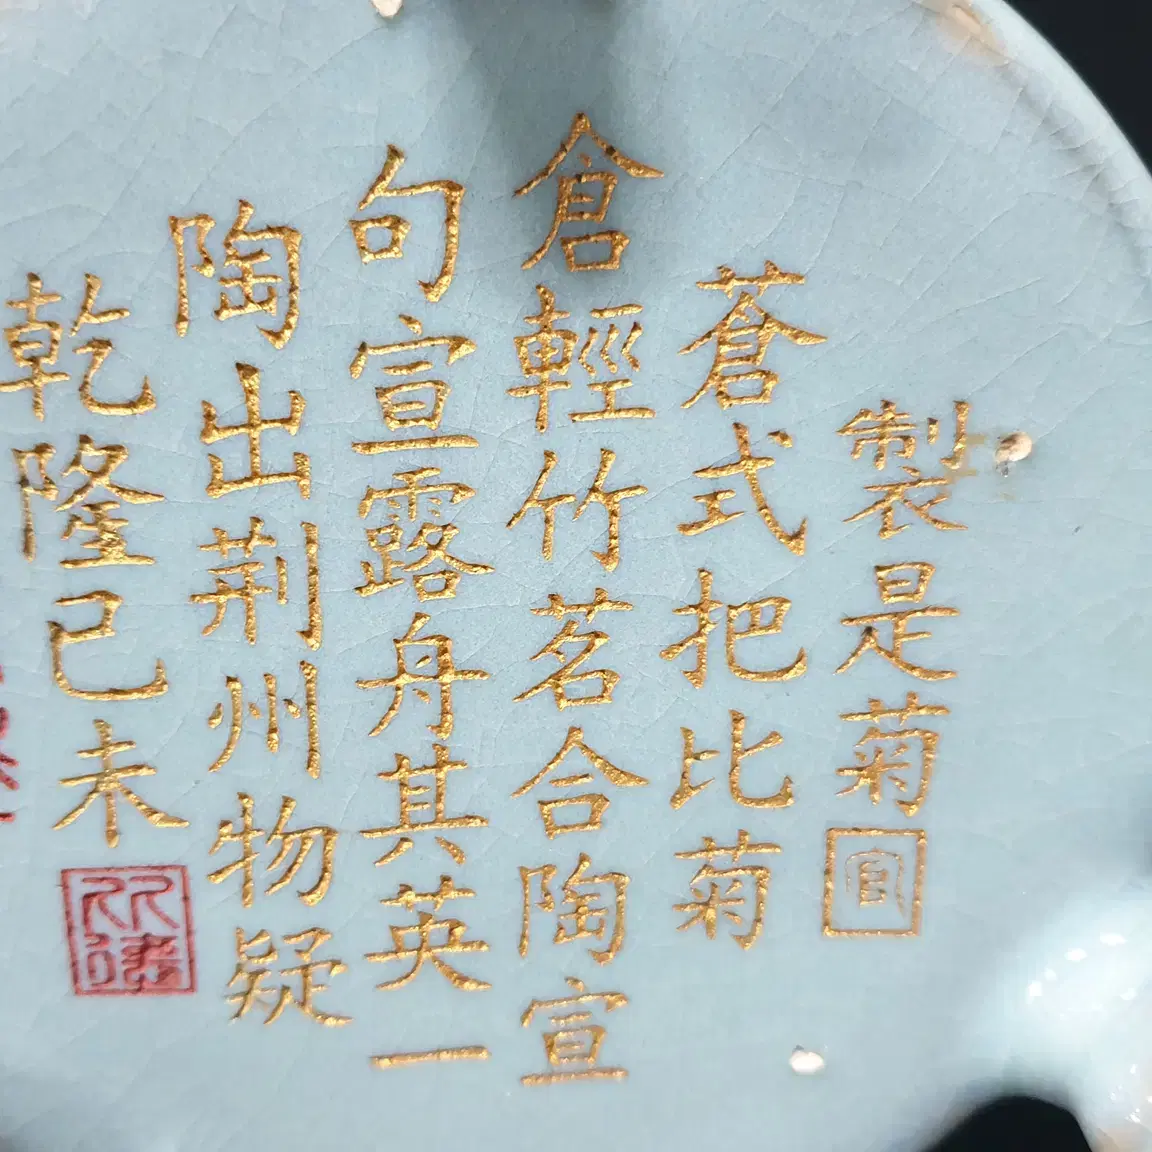 製是菊官
蒼式把比菊
倉輕竹茗合陶宣
句宣露舟其英一
陶出荆州物疑
乾隆己未